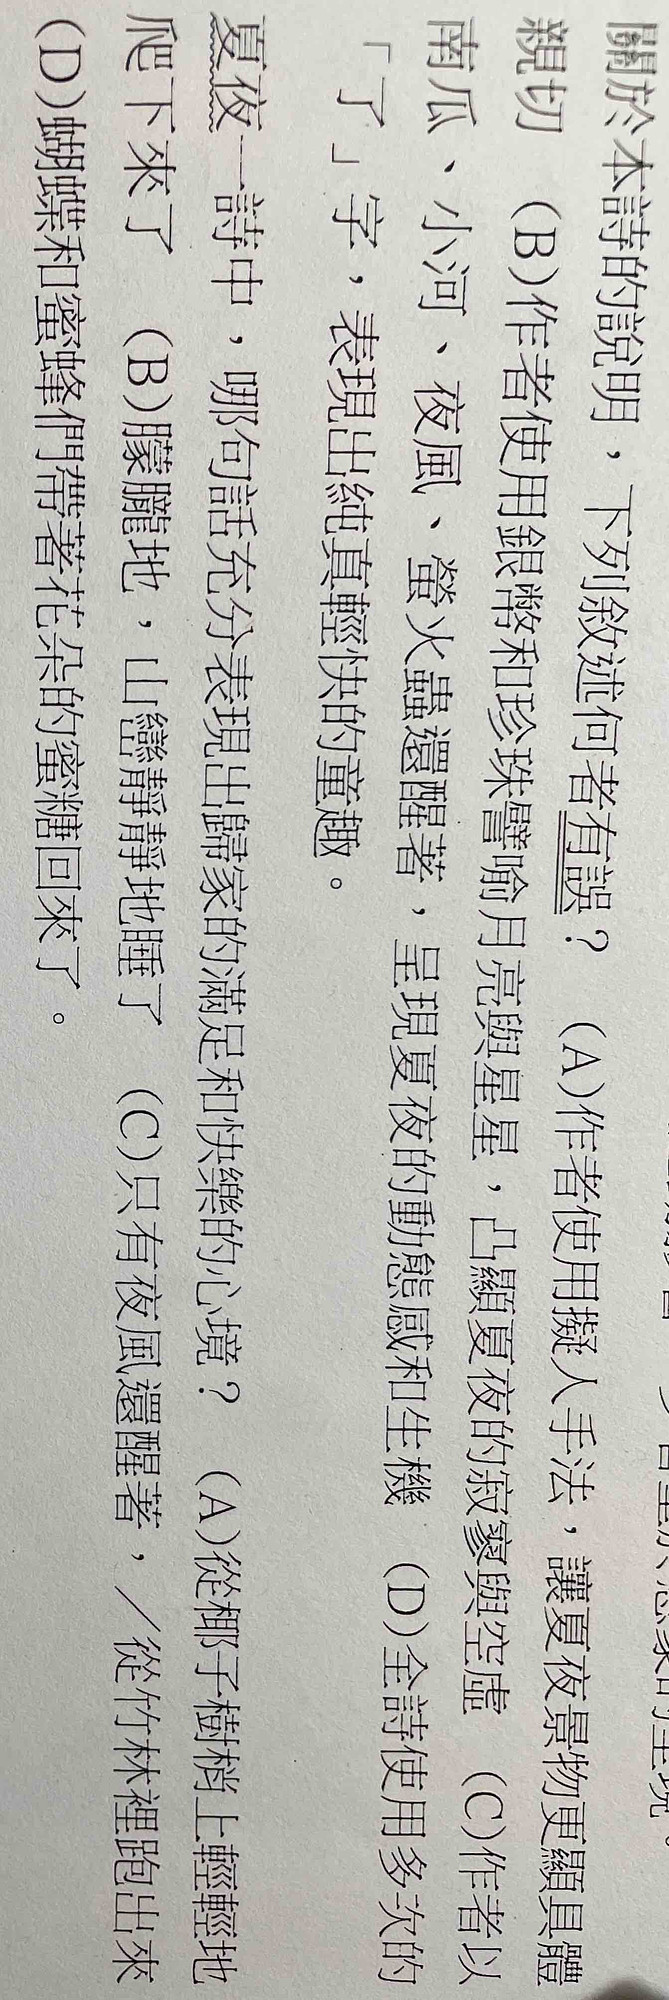 關於本詩的說明，下列敘述何者有誤？　(A)作者使用擬人手法，讓夏夜景物更顯具體
親切　(B)作者使用銀幣和珍珠譬喻月亮與星星，凸顯夏夜的寂寥與空虛　(C)作者以
南瓜、小河、夜風、螢火蟲還醒著，呈現夏夜的動態感和生機　(D)全詩使用多次的
「了」字，表現出純真輕快的童趣。
夏夜一詩中，哪句話充分表現出歸家的滿足和快樂的心境？　(A)從椰子樹梢上輕輕地
爬下來了　(B)朦朧地，山巒靜靜地睡了　(C)只有夜風還醒著，／從竹林裡跑出來
(D)蝴蝶和蜜蜂們帶著花朵的蜜糖回來了。